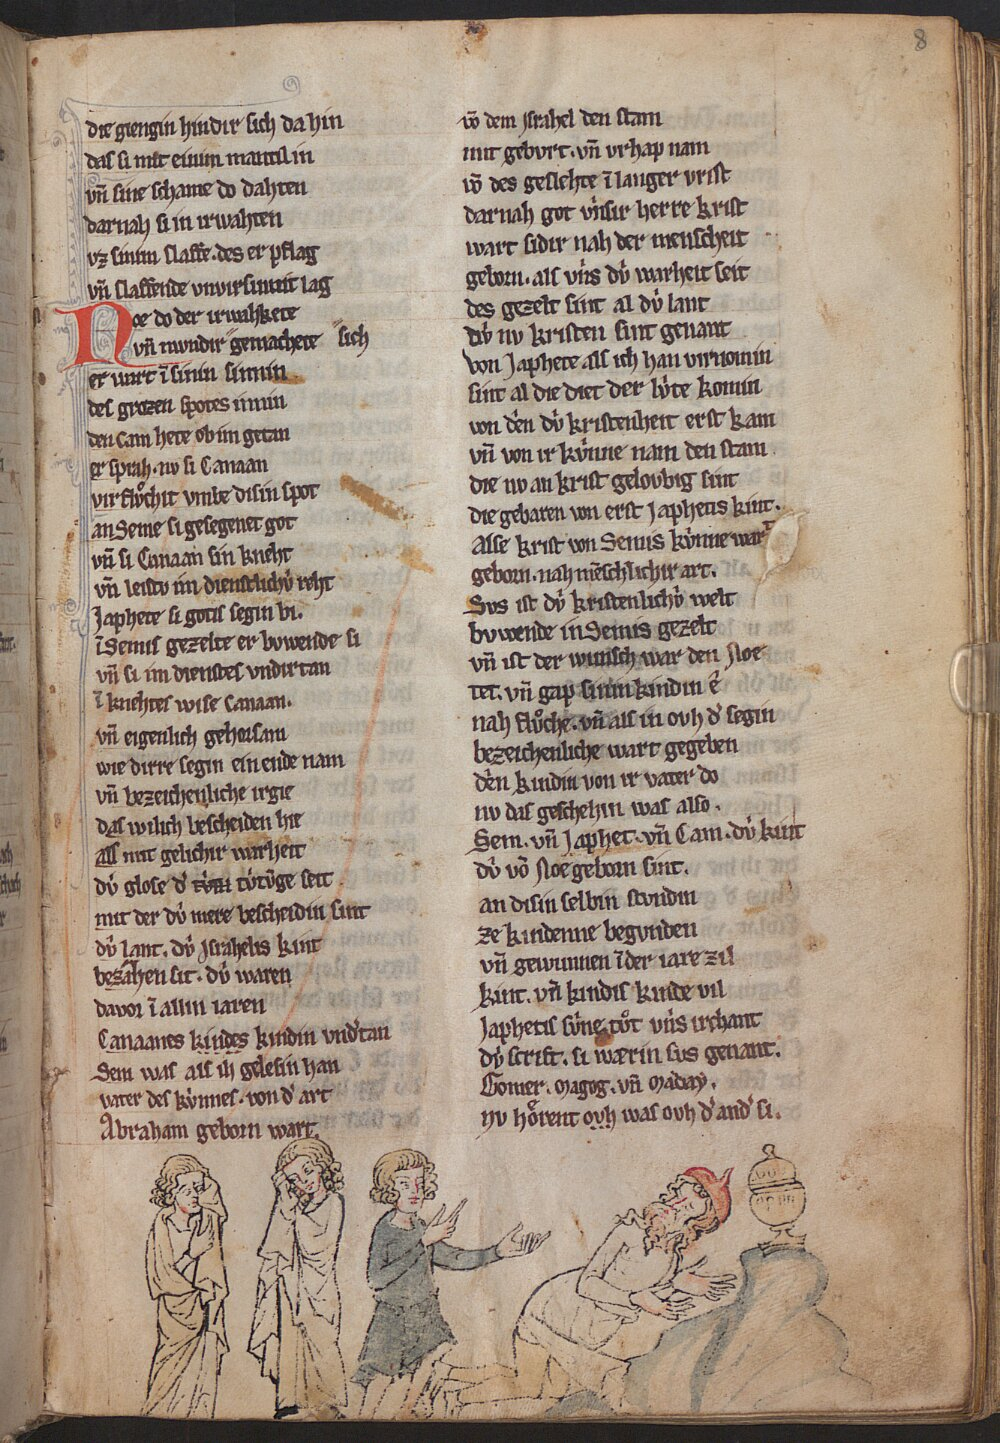 8
die giengin hindir sich da hin
das si mit einim mantil in
vn̄ sine schame do dahten
darnah si in irwahten
vz sinim slaffe · des er pflag
vn̄ slaffende vnvirsunnit lag
Noe do der irwahkete
vn̄ mundir gemachete sich
er wart ī sinin sinnin
des grozen spotes innin
den Cam hete ob im getan
er sprah · nv si Canaan
vir flůchit vmbe disin spot
an Seme si gesegenet got
vn̄ si Canaan sin kneht
vn̄ leistv im dienstlichv̓ reht
Japhete si gotis segin bi.
ī Semis gezelte er bvwende si
vn̄ si im dienstes vndirtan
ī knehtes wise Canaan.
vn̄ eigenlich gehorsam
wie dirre segin ein ende nam
vn̄ bezeichenliche irgie
das wilich bescheiden hie
als mit gelichir warheit
dv̓ glose d' tv̓tvge seit
mit der dv̓ mere bescheidin sint
dv̓ lant . dv̓ Jsrahelis kint
bezahen sit . dv̓ waren
davor ī allin iaren
Canaanes kindes kindin vnd'tan
Sem was als ih gelesin han
vater des kv̓nnes . von d' art
Abraham geborn wart.
vō dem Jsrahel den stam
mit gebvrt . vn̄ vrhap nam
vō des geslehte ī langer vrist
darnah got vn̓sir herre krist
wart sidir nah der menscheit
geborn . als vn̓s dv̓ warheit seit
des gezelt sint al dv̓ lant
dv̓ nv kristen sint genant
von Japhete als ich han virnomin
sint al die diet der lv̓te komin
von den dv̓ kristenheit erst kam
vn̄ von ir kv̓nne nam den stam
die nv an krist gelovbig sint
die gebaren von erst Japhetis kint.
Alse krist von Semis kv̓nne wart
geborn . nah mēschlichir art.
Svs ist dv̓ kristenlichv̓ welt
bvwende in Semis gezelt
vn̄ ist der wunsch war den Noe
tet . vn̄ gap sinin kindin ê
nah flůche . vn̄ als in ovh d' segin
bezeichenliche wart gegeben
den kindin von ir vater do
nv das geschehin was also .
Sem . vn̄ Japhet . vn̄ Cam . dv̓ kint
dv̓ vō Noe geborn sint .
an disin selbin stvndin
ze kindenne begvnden
vn̄ gewunnen ī der iare zil
kint . vn̄ kindis kinde vil
Japhetis sv̓ne tůt vn̓s irchant
dv̓ scrift . si wærin svs genant .
Gomer . Magog . vn̄ Maday .
nv hôrent ovh was ovh d' and' si .